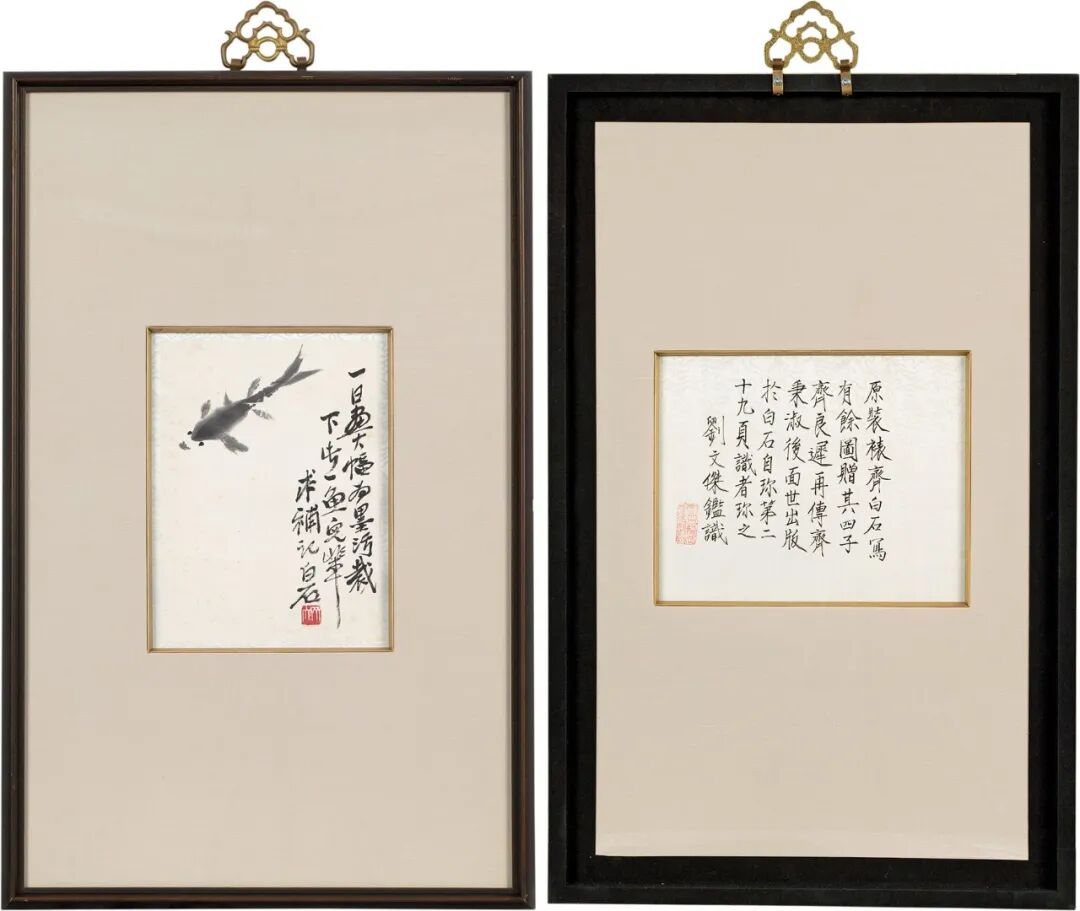 一日画大幅为墨污裁
下此一鱼儿辈
求補記白石
原装裱齊白石寫
有餘圖贈其四子
齊良遲再傳齊
秉淑後面世出版
於白石自珎第二
十九頁識者珎之
劉文傑鑑識